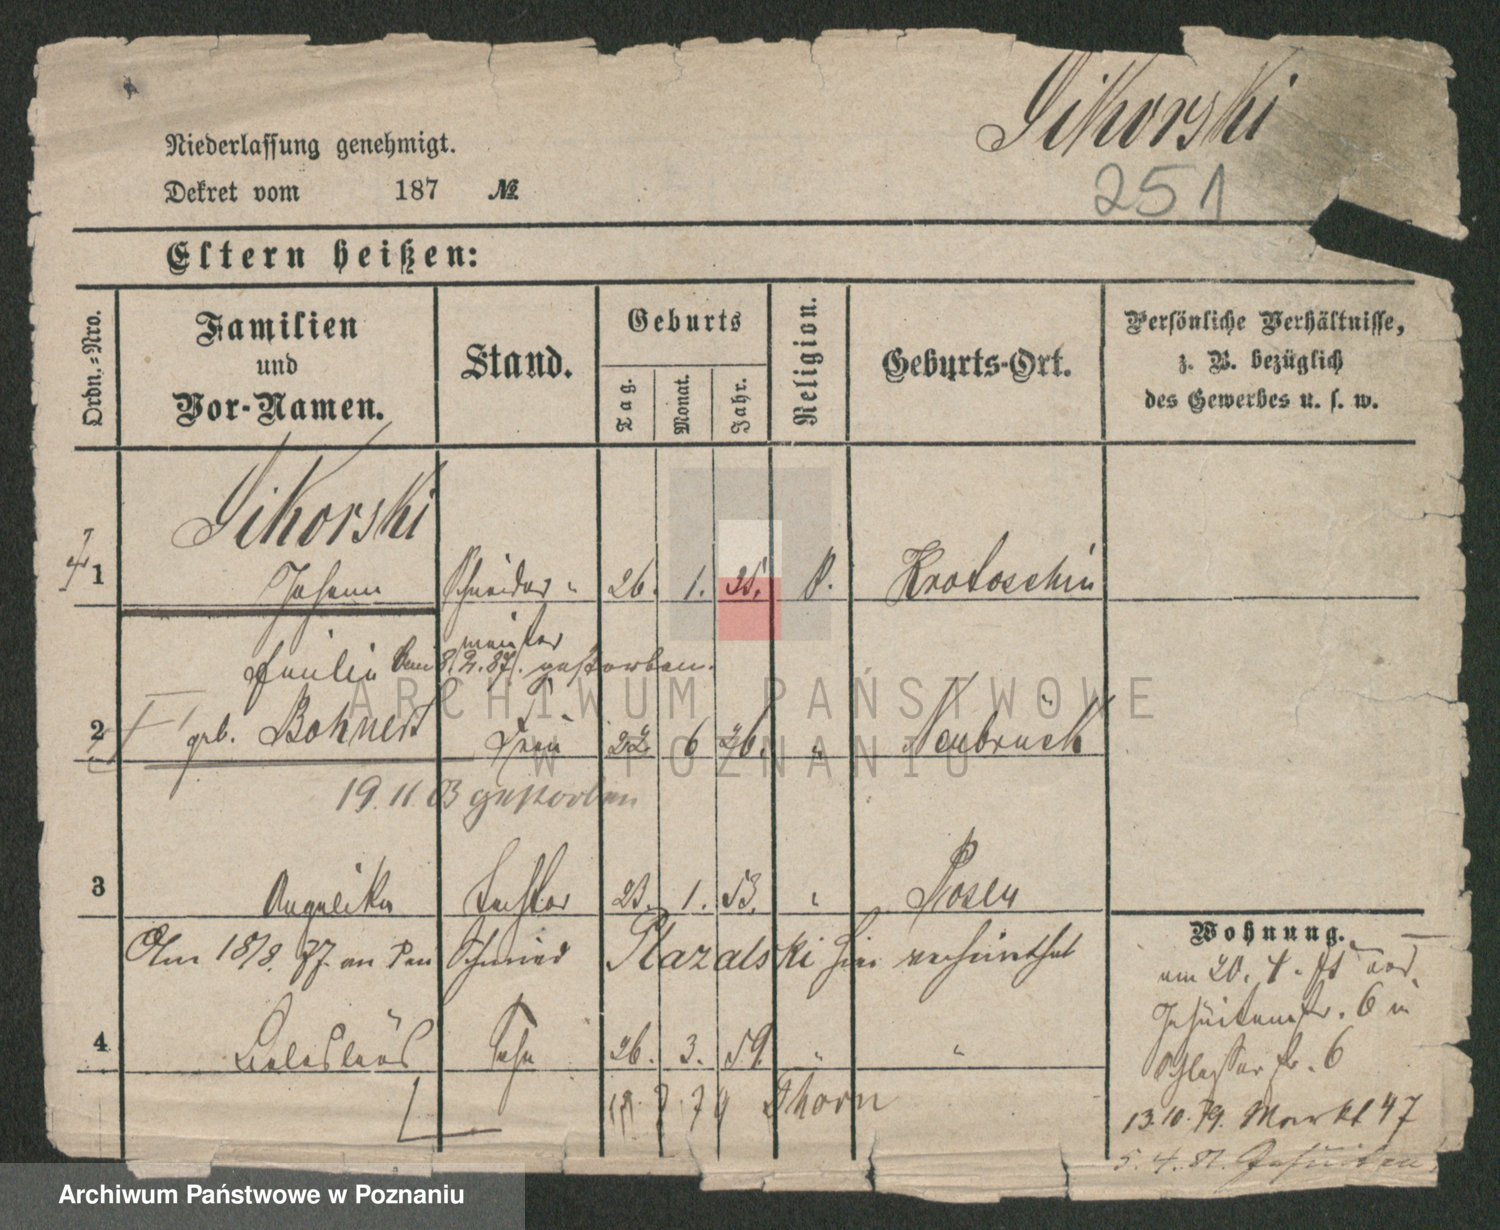 Sikorski
251
Niederlassung genehmigt.
Dekret vom 187 №
Eltern heißen:
Ordn.-Nro.
Familien
und
Vor-Namen.
Stand.
Geburts
Tag.
Monat.
Jahr.
Religion.
Geburts-Ort.
Persönliche Verhältnisse,
z. B. bezüglich
des Gewerbes u. s. w.
Sikorski
1 Johann Schneider- 26. 1. 25. k. Krotoschin
meister
8.2.87. gestorben.
2 geb. Bohnert Frau 22. 6 26. " Neubrück
19.11.03 gestorben
3 Angelika Tochter 23. 1. 53. " Posen
Am 18/8. 77. an den Schmied hier verheirathet
4 Sohn 26. 3. 59. " "
79 Thorn
Wohnung.
am 20. 4. von
Jesuitenstr. 6 in
Schlosserstr. 6
13.10.79. Markt 47
5. 4. 81. Jesuiten
ARCHIWUM PAŃSTWOWE
W POZNANIU
Archiwum Państwowe w Poznaniu